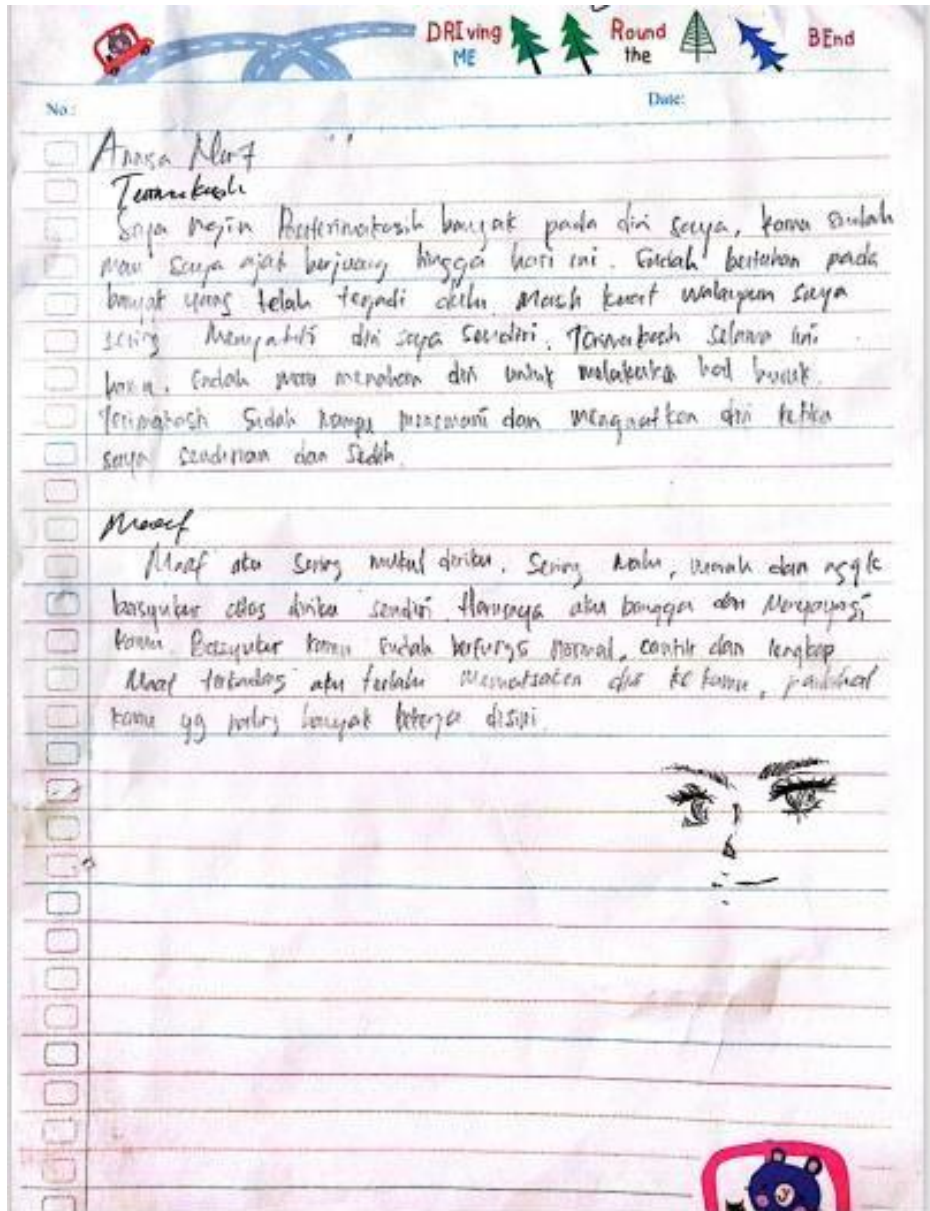 DRIving ME Round the BEnd
No.: Date:
Saya ingin Berterimakasih banyak pada diri saya, kamu sudah
mau saya ajak berjuang hingga hari ini. Sudah bertahan pada
banyak yang telah terjadi dulu. Masih kuat walaupun saya
sering Menyakiti diri saya sendiri. Terimakasih selama ini
Sudah mau menahan diri untuk melakukan hal buruk.
Terimakasih Sudah mampu menemani dan menguatkan diri ketika
saya sendirian dan Sedih.
Maaf
Maaf aku Sering mukul diriku. Sering malu, marah dan nggk
bersyukur atas diriku sendiri. Harusnya aku bangga dan Menyayangi
kamu. Bersyukur kamu sudah berfungs normal, cantik dan lengkap
Maaf terkadang aku terlalu memaksakan ke kamu, padahal
kamu yg paling banyak bekerja disini.